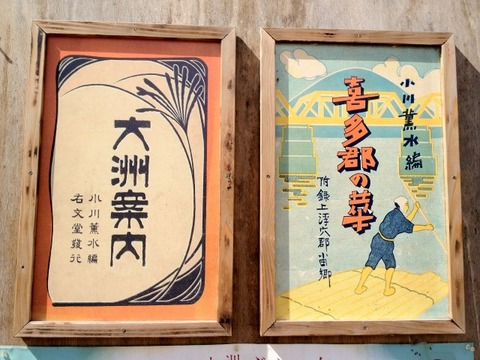 大洲案内
小川薫水編
名文堂發行
小川薫水編
喜多郡の華
附録上浮穴郡小田郷